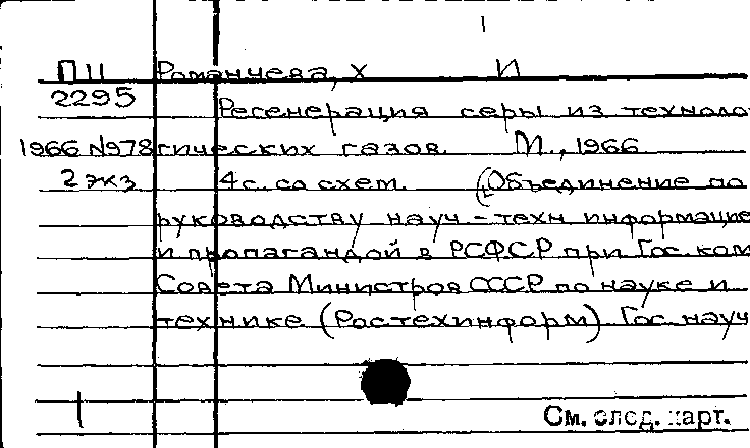 1
П11 Романчева, Х И
2295 Регенерация серы из техноло
1966 №78 гических газов. М., 1966
2 экз 4 с. со схем. (Объединение по
руководству науч-техн информацие
и пропагандой в РСФСР при Гос ком
Совета Министров СССР по науке и
технике (Ростехинформ) Гос науч
См. след. карт.